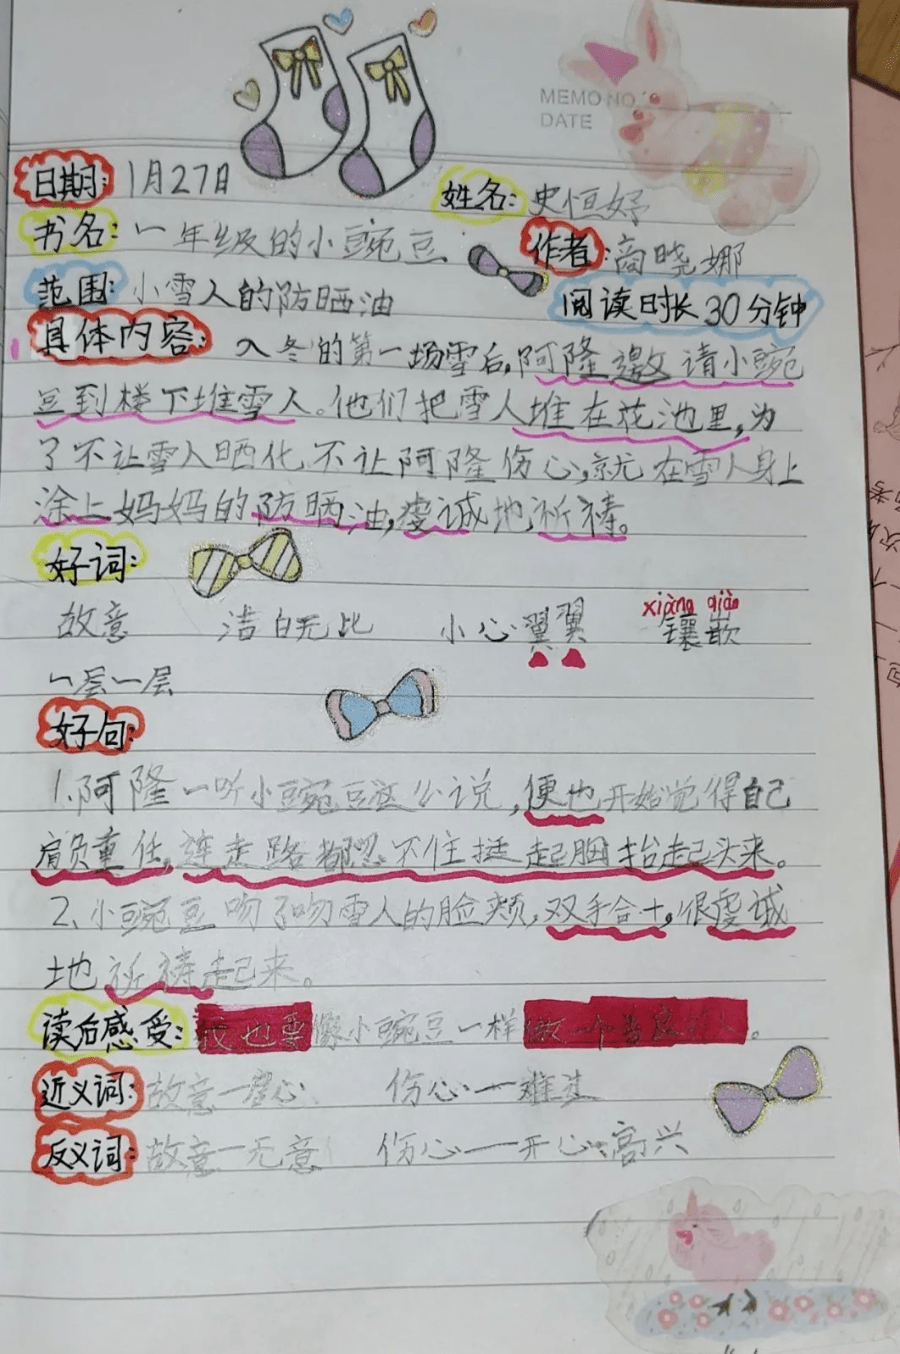 MEMO NO.
DATE
日期: 1月27日
姓名: 史恒妤
书名: 一年级的小豌豆
作者: 商晓娜
范围: 小雪人的防晒油
阅读时长30分钟
具体内容: 入冬的第一场雪后,阿隆邀请小豌
豆到楼下堆雪人。他们把雪人堆在花池里,为
了不让雪人晒化,不让阿隆伤心,就在雪人身上
涂上妈妈的防晒油,虔诚地祈祷。
好词:
xiāng qiàn
故意 洁白无比 小心翼翼 镶嵌
一层一层
好句:
1.阿隆一听小豌豆这么说,便也开始觉得自己
肩负重任,连走路都忍不住挺起胸抬起头来。
2、小豌豆吻了吻雪人的脸颊,双手合十,很虔诚
地祈祷起来。
读后感受: 我也要像小豌豆一样做一个善良的人。
近义词: 故意一 心 伤心一难过
反义词: 故意一无意 伤心一开心、高兴